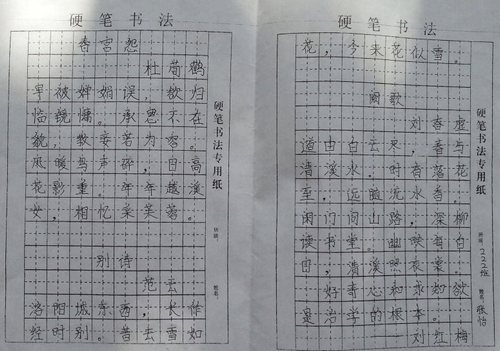 硬笔书法
春宫怨
杜荀鹤
早被婵娟误，欲归
临镜慵。承恩不在
貌，教妾若为容。
风暖鸟声碎，日高
花影重。年年越溪
女，相忆采芙蓉。
别诗
范云
洛阳城东西，长作
经时别。昔去雪如
硬笔书法专用纸
班级：
姓名：
硬笔书法
花，今来花似雪。
阙歌
刘昚虚
道由白云尽，春与
清溪水。时有落花
至，远随流水香。
闲门向山路，深柳
读书堂。幽映每白
日，清溪照衣裳。
好奇心和求知欲
是治学的根本。
——刘红梅
硬笔书法专用纸
班级：222班
姓名：张怡